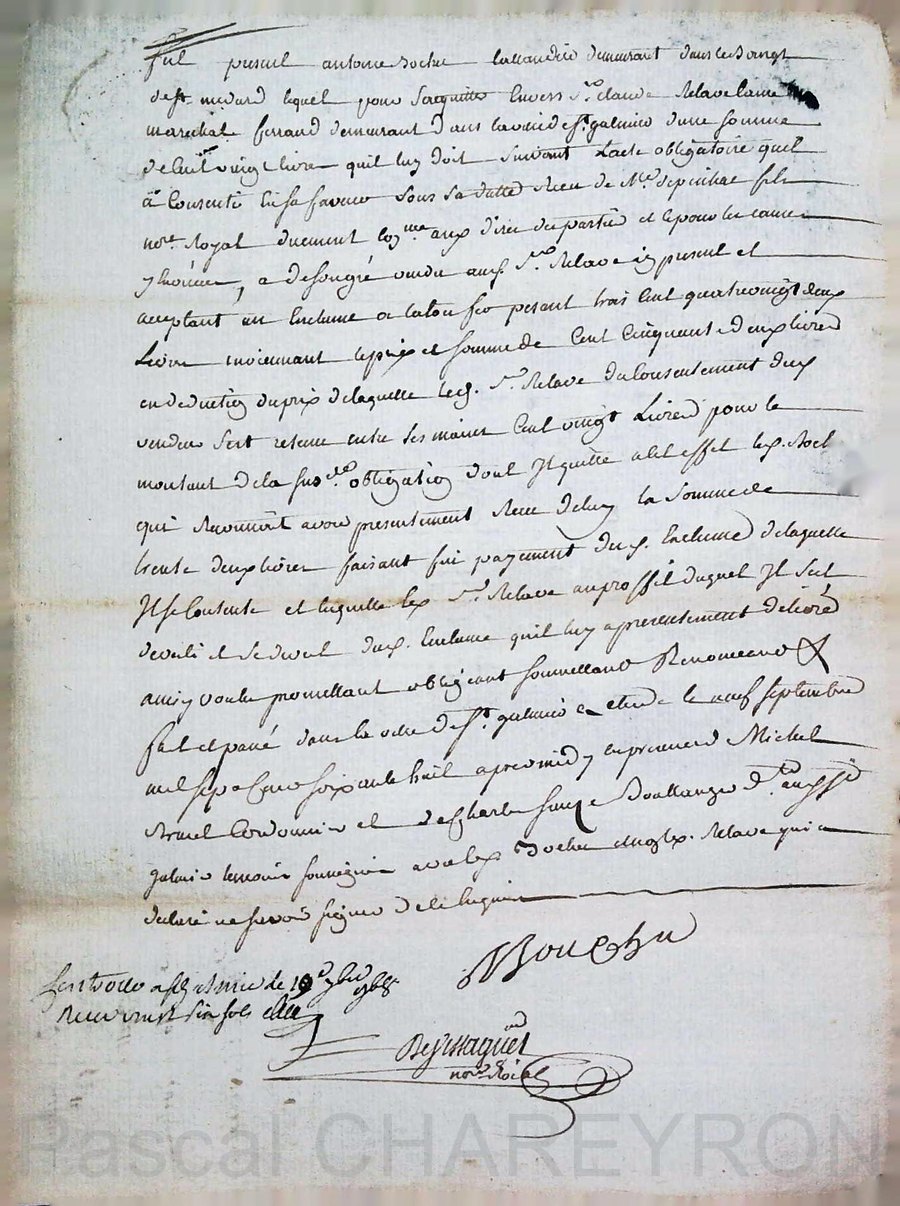 fut present antoine Rochu demeurant dans le bourg
de st medard lequel pour sacquitter Envers Sr. claude Relave laine
marechal ferrand demeurant Dans la ville de st. galmier dune somme
de Cent vingt livre quil luy doit suivant Lacte obligatoire quil
a Consenti En sa faveur sous sa datte Receu de Me. depinhac fils
nore. Royal duement aux dires des parties et le pour les cause
y enoncer, a de son gré vendu aud. Sr. Relave present et
acceptant un Enclume pesant trois Cent quatrevingt deux
Livre moiennant le prix et somme de Cent Cinquante deux livres
en deduction du prix de laquelle led. Sr. Relave du Consentement dud.
vendeur s'est retenu entre ses mains Cent vingt Livres pour le
montant de la susde. obligation dont Il quitte a cet effet led.
qui Reconnoit avoir presentement Receu de luy la somme de
trente deux livres faisant fin payement dud. Enclume de laquelle
Il se Contente et en quitte led. Sr. Relave au proffit duquel Il s'est
devetu et dud. Enclume quil luy a presentement delivré
ainsy voulu promettant obligeant soumettant Renonceant &
fait et passé dans la ville de st. galmier etude le neuf septembre
mil sept Cent soixante huit apres midy en presence de Michel
Cordonnier et de Charle Boullanger dt. aud. st.
galmier temoins soussignés avec led. Rochu non led. Relave qui a
declaré ne savoir signer de ce Enquis
Controllé a st. galmier le 19e. 7bre 1768
Receu vingt six sols
nore. Roial
Pascal CHAREYRON